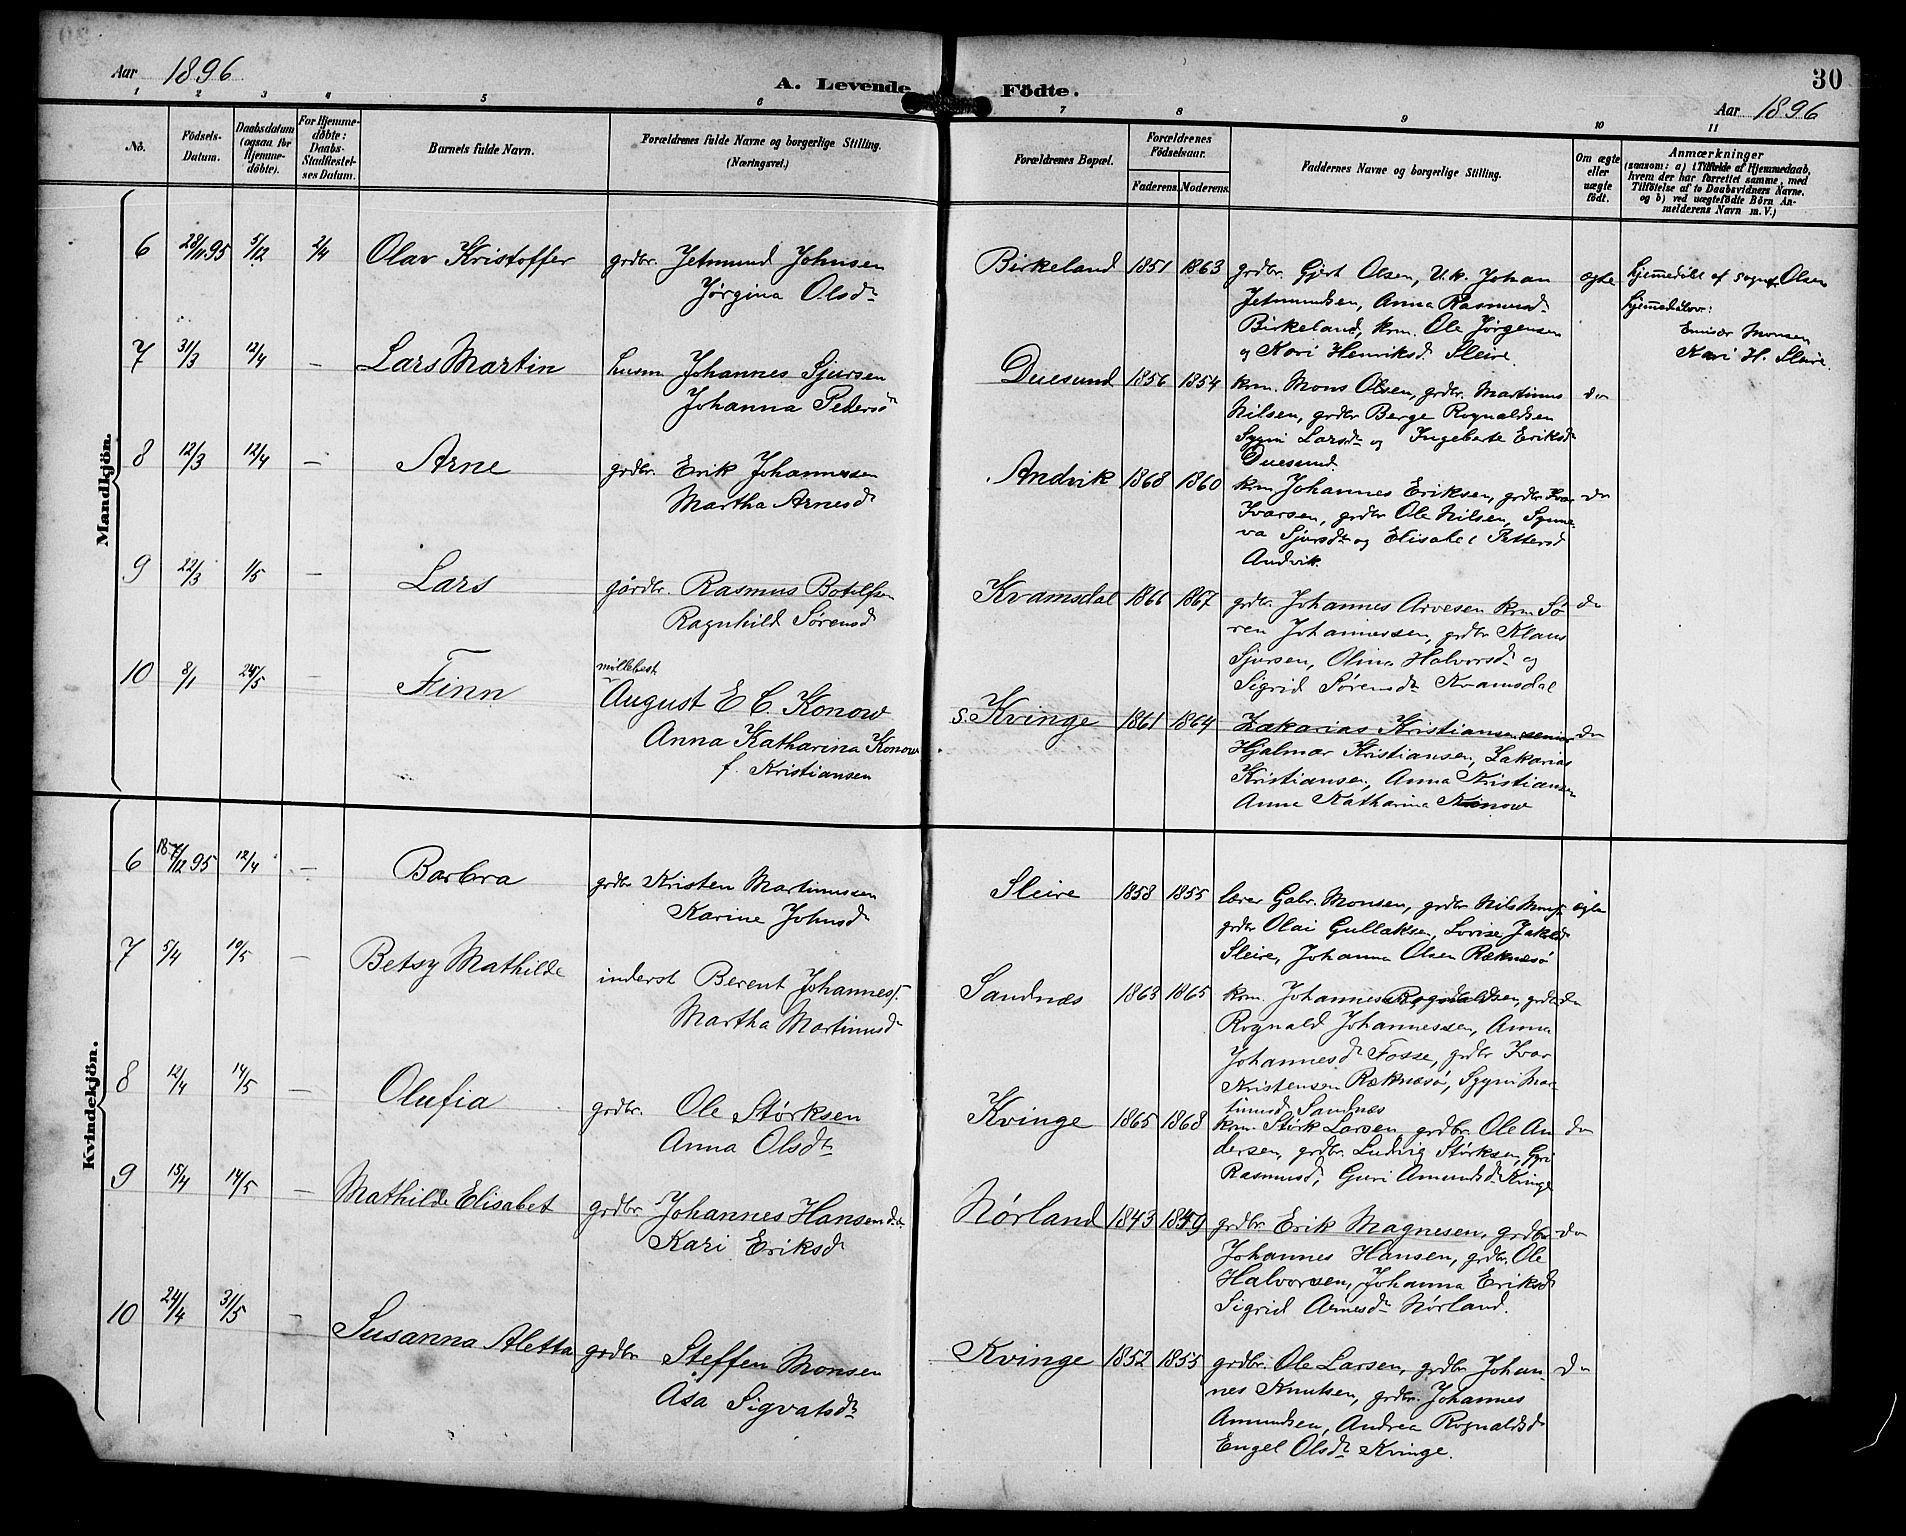 Aar 1896
A. Levende Födte.
30
Aar 1896
1 2 3 4 5 6 7 8 9 10 11
No.
Födsels-Datum.
Daabsdatum (ogsaa for Hjemme-döbte).
For Hjemme-döbte: Daabs-Stadfæstel-ses Datum.
Barnets fulde Navn.
Forældrenes fulde Navne og borgerlige Stilling. (Næringsvei.)
Forældrenes Bopæl.
Forældrenes Födselsaar.
Faderens. Moderens.
Faddernes Navne og borgerlige Stilling.
Om ægte eller uægte födt.
Anmærkninger
(saasom: a) i Tilfælde af Hjemmedaab,
hvem der har forrettet samme, med
Tilföielse af to Daabsvidners Navne.
og b) ved uægtefödte Börn An-
melderens Navn m. V.)
Mandkjön.
6 28/11 95 5/12 2/4 Olav Kristoffer grdbr. Jetmund Johnsen
Jørgina Olsdr
Birkeland 1851 1863 grdbr. Gjert Olsen, U.k. Johan
Jetmundsen, Anna Rasmusd
Birkeland, krm. Ole Jørgensen
og Kari Henriksdr Sleire.
ægte
hjemmedøbt af sognepr Olsen
hjemmedbv:
Einar Monsen
Kari H. Sleire.
7 31/3 12/4 – Lars Martin husm Johannes Sjursen
Johanna Pedersd
Duesund 1856 1854 krm. Mons Olsen, grdbr. Martinus
Nilsen, grdbr Berge Rognaldsen
Sygni Larsdr og Ingeborte Eriksdr
Duesund.
do
8 12/3 12/4 – Arne grdbr. Erik Johannessen
Martha Arnesdr
Andvik 1868 1860 krm Johannes Eriksen, grdbr Ivar
Ivarsen, grdbr Ole Nilsen, Synne-
va Sjursdr og Elisabet Pettersd
Andvik.
do
9 22/3 1/5 – Lars gårdbr. Rasmus Botelfsen
Ragnhild Sørensd
Kvamsdal 1866 1867 grdbr. Johannes Arvesen krm Sø-
ren Johannessen, grdbr Klaus
Sjursen, Olina Halvorsdr og
Sigrid Sørensdr Kvamsdal
do
10 8/1 25/5 – Finn
August E C. Konow
Anna Katharina Konow
f. Kristiansen
S. Kvinge 1861 1864 Zakarias Kristiansen senior
Hjalmar Kristiansen, Zakarias
Kristiansen, Anna Kristiansen
Anna Katharina Konow
do
Kvindekjön.
6 12/4 – Barbra grdbr Kristen Martinussen
Karine Johnsdr
Sleire 1858 1855 lærer Gabr. Monsen, grdbr Nils
grdbr Olai Gullaksen, Lovise
Sleire, Johanna OlsenRæknæsø
ægte
7 5/4 10/5 – Betsy Mathilde inderst Berent Johannes.
Martha Martinusdr
Sandnæs 1863 1865 krm. Johannes Rognaldsen, grdbr
Rognald Johannessen, Anna
Johannesdr Fosse, grdbr Ivar
Kristensen Ræknæsø, Sygni Mar-
tinusd Sandnæs
do
8 12/4 14/5 – Olufia grdbr. Ole Størksen
Anna Olsdr
Kvinge 1865 1868 krm. Størk Larsen, grdbr. Ole An-
dersen, grdbr. Ludvig Størksen, Gyri
Rasmusd, Guri Amundsdr Kvinge
do
9 15/4 14/5 – Mathilde Elisabet grdbr. Johannes Hansen
Kari Eriksdr
Nørland 1843 18 grdbr. Erik Magnesen, grdbr
Johannes Hansen, grdbr. Ole
Halvorsen, Johanna Eriksd
Sigrid Arnesdr Nørland.
do
10 24/4 31/5 – Susanna Aletta grdbr Steffen Monsen
Åsa Sigvatsdr
Kvinge 1852 1855 grdbr. Ole Larsen, grdbr Johan-
nes Knutsen, grdbr. Johannes
Amundsen, Andrea Rognaldsd
Engel Olsdr Kvinge.
do